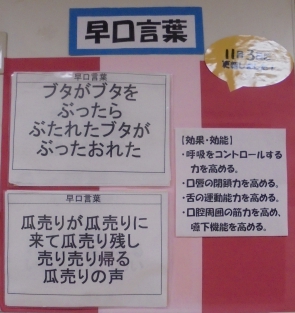 早口言葉
11月3日
早口言葉
ブタがブタを
ぶったら
ぶたれたブタが
ぶったおれた
早口言葉
瓜売りが瓜売りに
来て瓜売り残し
売り売り帰る
瓜売りの声
【効果・効能】
・呼吸をコントロールする
力を高める。
・口唇の閉鎖力を高める。
・舌の運動能力を高める。
・口腔周囲の筋力を高め、
嚥下機能を高める。